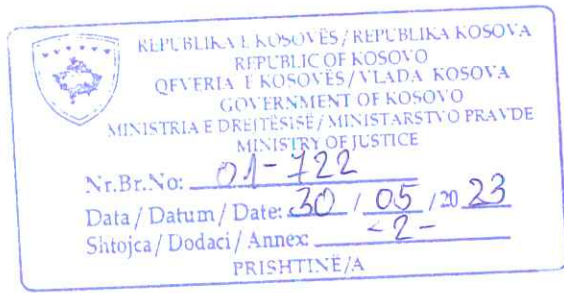 REPUBLIKA E KOSOVËS / REPUBLIKA KOSOVA
REPUBLIC OF KOSOVO
QEVERIA E KOSOVËS / VLADA KOSOVA
GOVERNMENT OF KOSOVO
MINISTRIA E DREJTËSISË / MINISTARSTVO PRAVDE
MINISTRY OF JUSTICE
Nr.Br.No: 01-722
Data / Datum / Date: 30 / 05 / 20 23
Shtojca / Dodaci / Annex: -2-
PRISHTINË/A